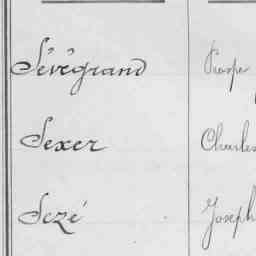 Sévégrand Prosper
Sexer Charles
Sezé Joseph